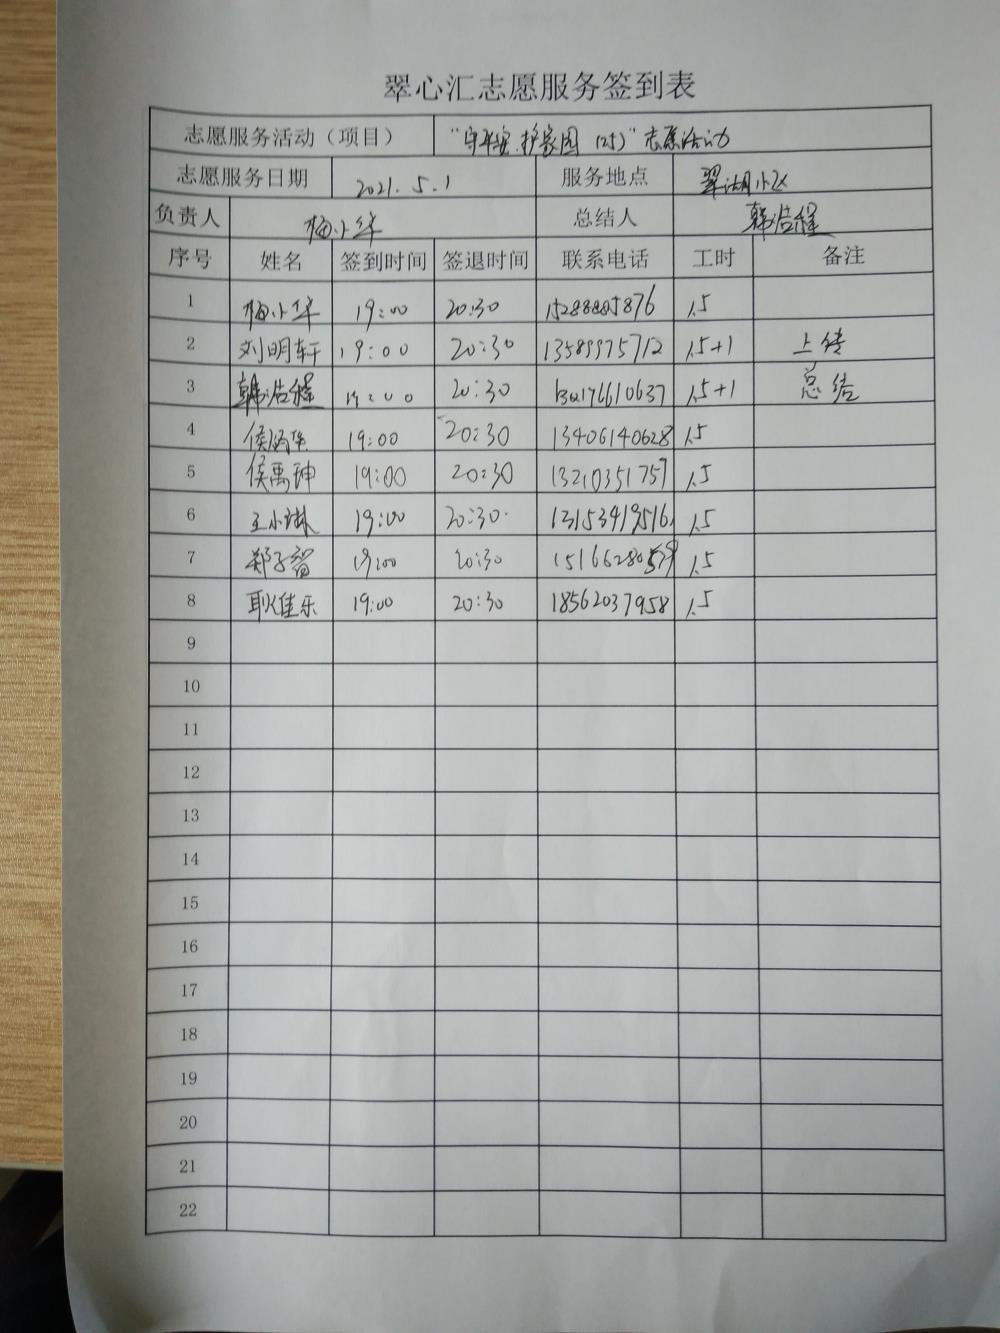 翠心汇志愿服务签到表
志愿服务活动（项目） “守平安.护家园（25）”志愿活动
志愿服务日期 2021.5.1 服务地点 翠湖小区
负责人 梅小华 总结人 韩浩程
序号 姓名 签到时间 签退时间 联系电话 工时 备注
1 梅小华 19:00 20:30 15288885876 1.5
2 刘明轩 19:00 20:30 13589975712 1.5+1 上传
3 韩浩程 19:00 20:30 1.5+1 总结
4 19:00 20:30 13406140628 1.5
5 侯禹珅 19:00 20:30 13210351757 1.5
6 王小琳 19:00 20:30 13153419516 1.5
7 郑子智 19:00 20:30 1.5
8 耿佳乐 19:00 20:30 18562037958 1.5
9
10
11
12
13
14
15
16
17
18
19
20
21
22